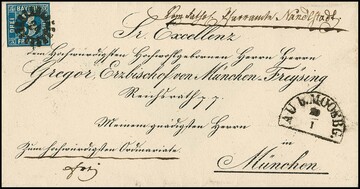 Vom kath. Pfarramte Nandlstadt
Sr. Excellenz
dem Hochwürdigsten Hochwohlgebornen Herrn Herrn
Gregor, Erzbischof von München-Freysing
Reichsrath p. p.
Meinem gnädigsten Herrn
Zum hochwürdigsten Ordinariate
in
frei
München
AU B. MOOSBG.
1